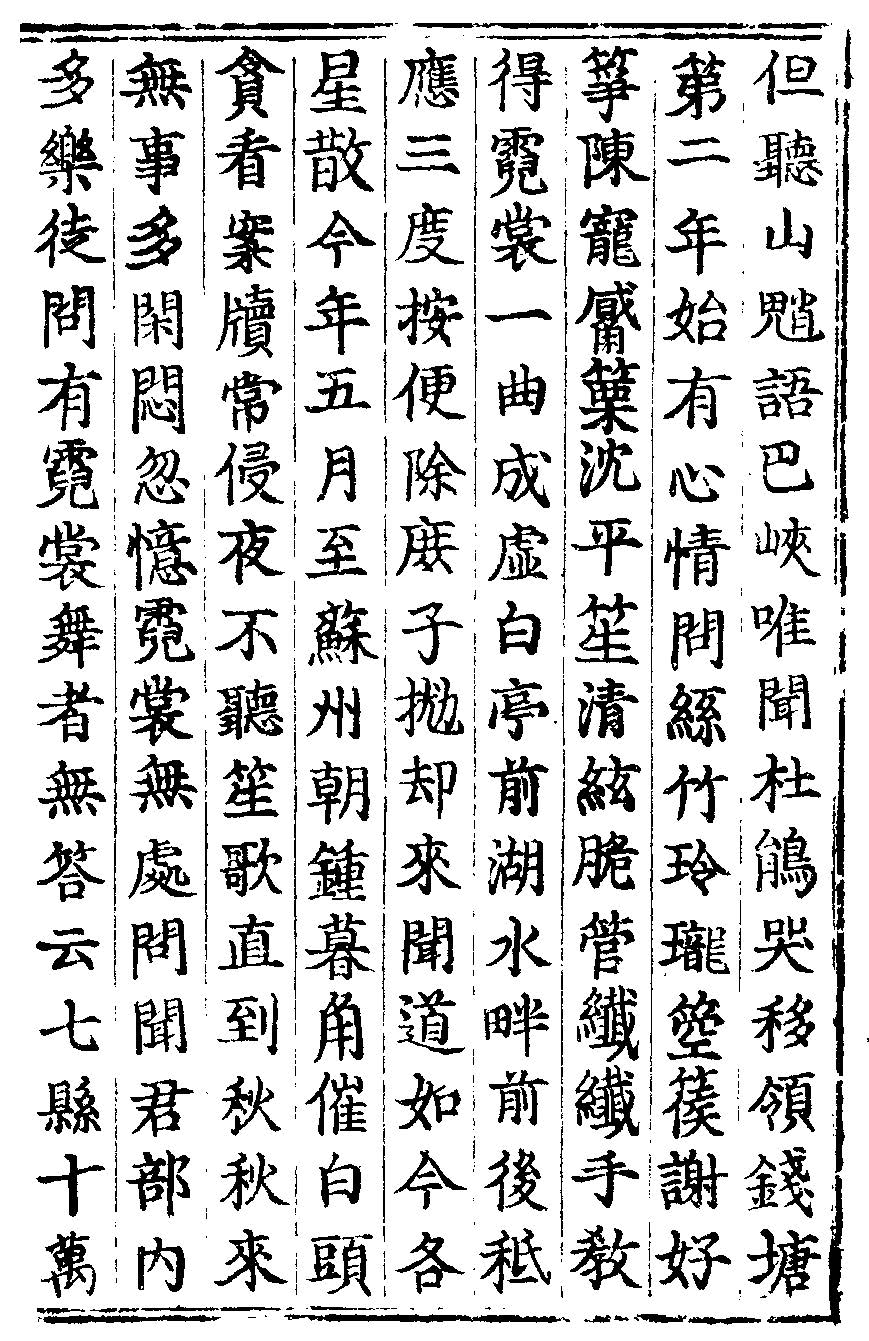 但聽山魈語巴峽唯聞杜鵑哭移領錢塘
第二年始有心情問絲竹玲瓏箜篌謝好
箏陳寵觱篥沈平笙清絃脆管纖纖手教
得霓裳一曲成虛白亭前湖水畔前後秪
應三度按便除庶子拋却來聞道如今各
星散今年五月至蘇州朝鍾暮角催白頭
貪看案牘常侵夜不聽笙歌直到秋秋來
無事多閑悶忽憶霓裳無處問聞君部内
多樂徒問有霓裳舞者無答云七縣十萬